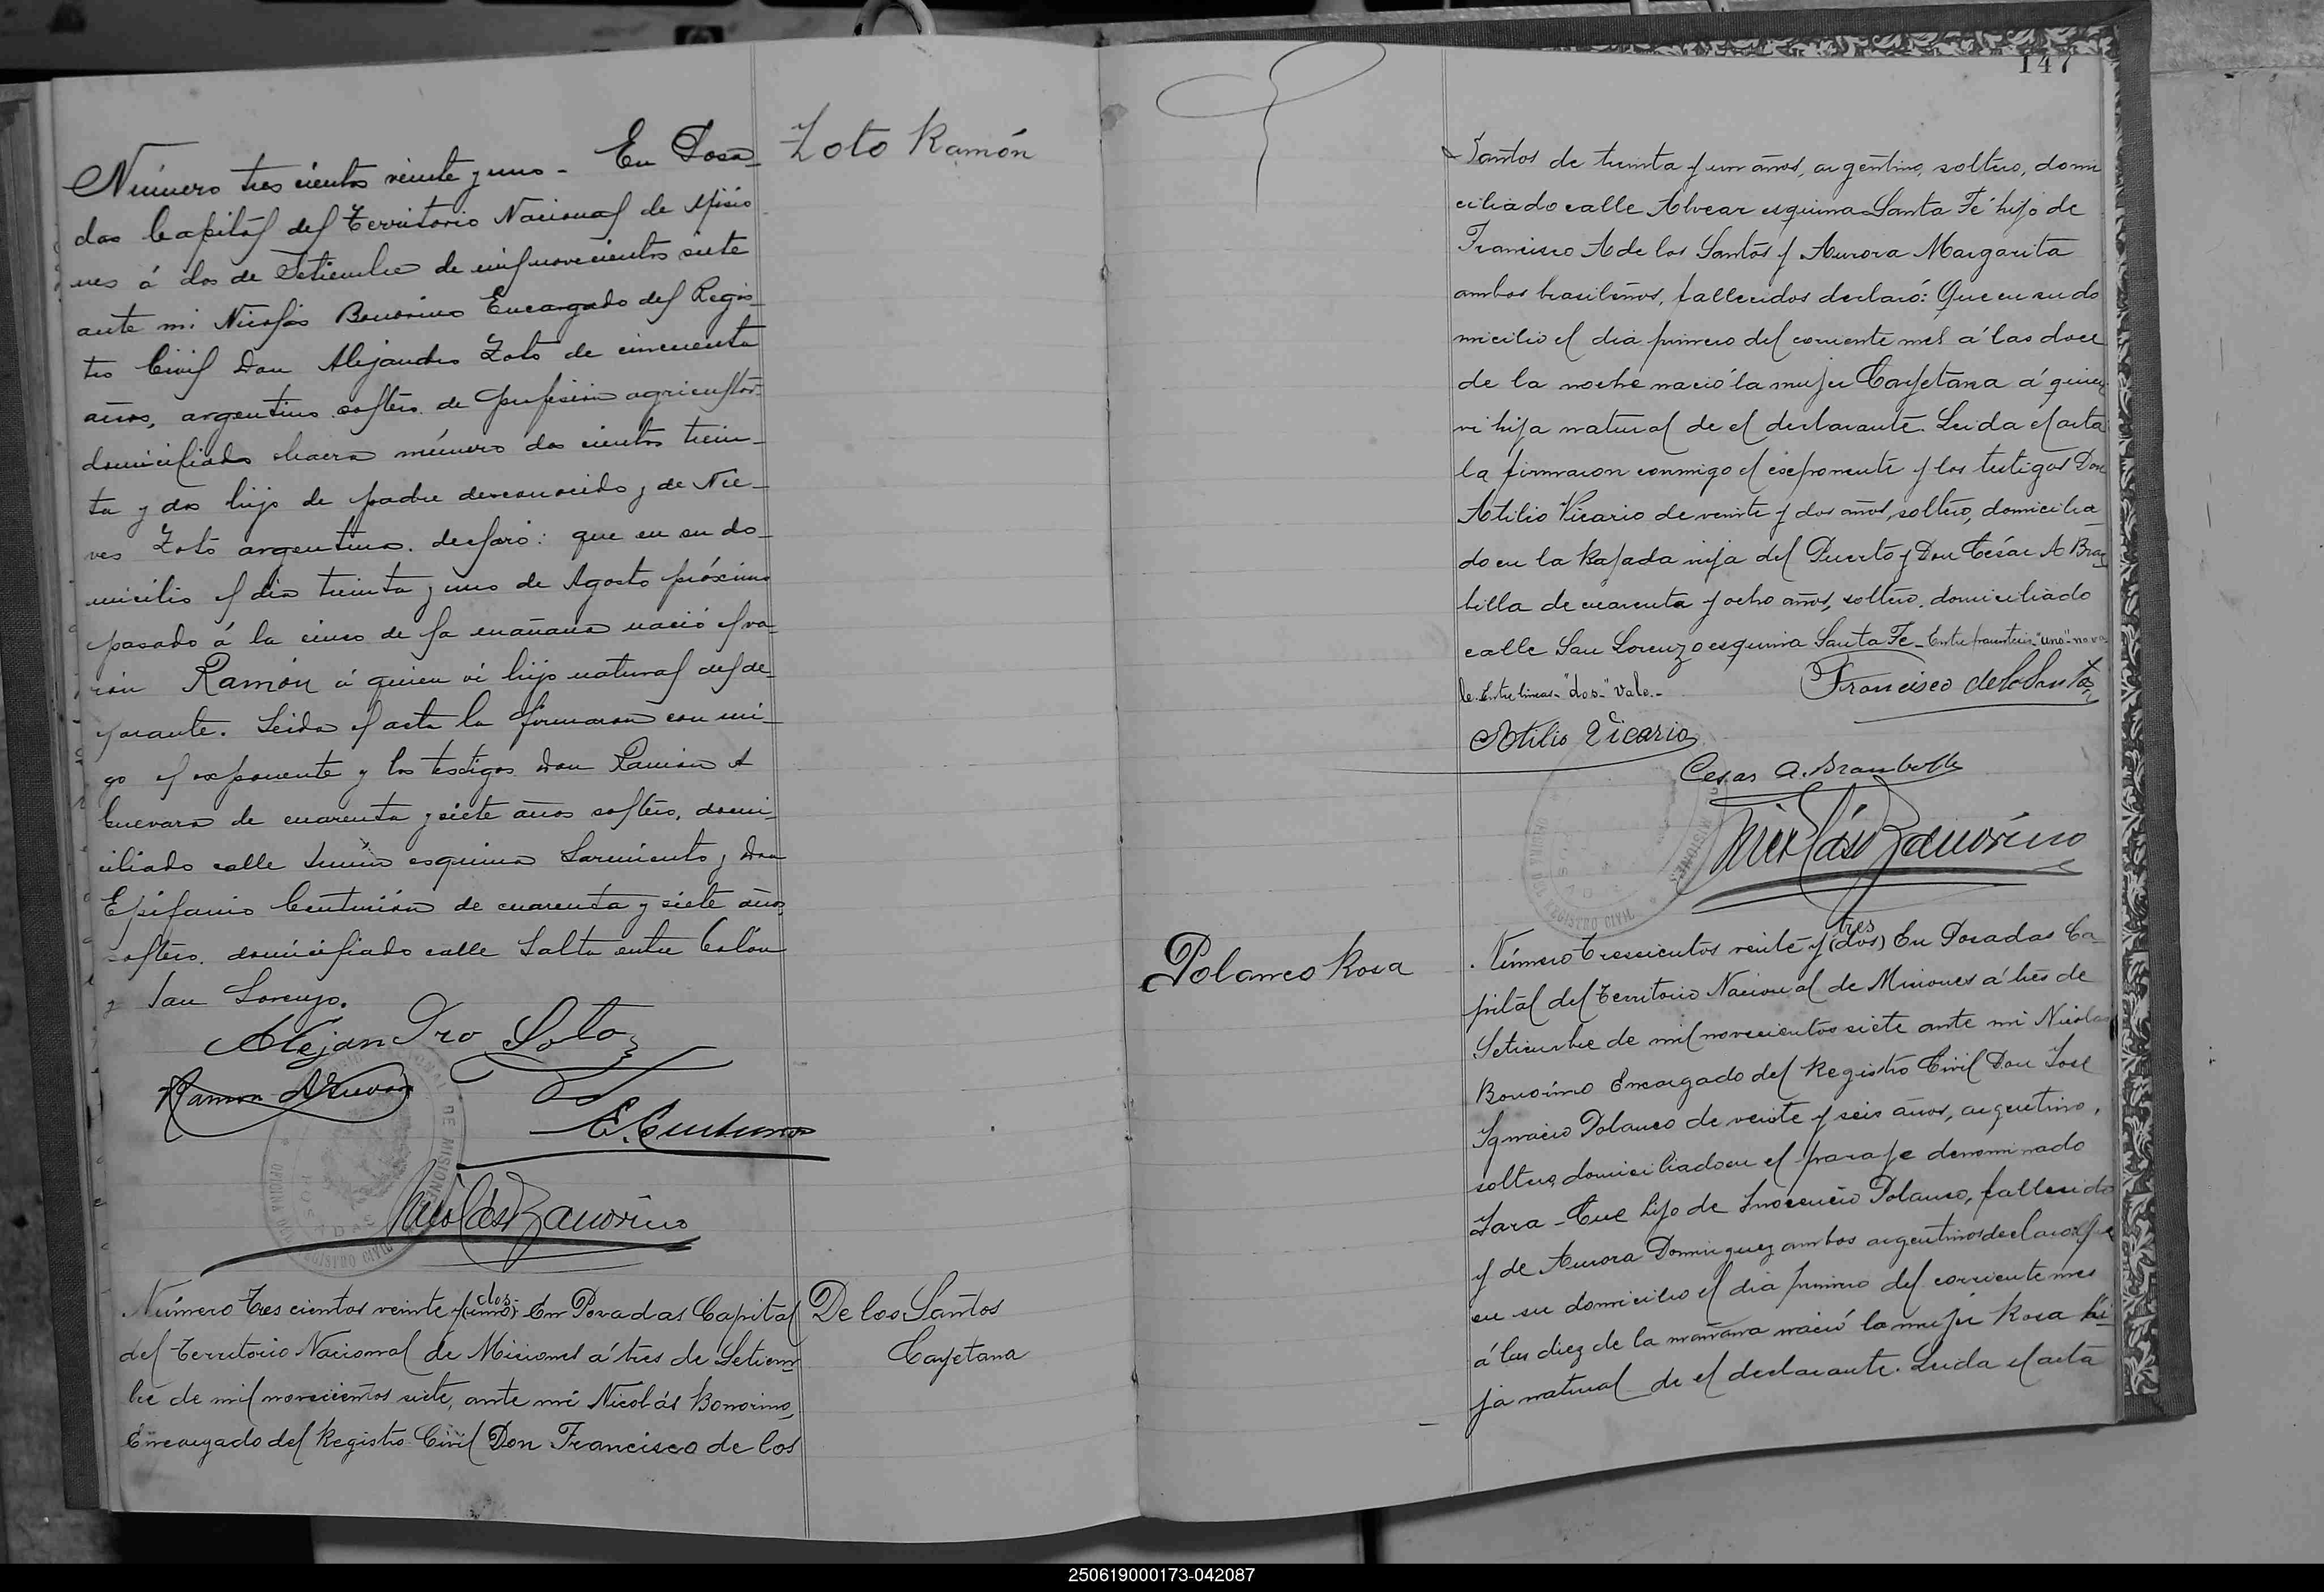 Zoto Ramón
Número tres cientos veinte y uno - En Posa-
das Capital del Territorio Nacional de Misio
nes á dos de Setiembre de mil novecientos siete
ante mi Nicolás Bonorino Encargado del Regis-
tro Civil Don Alejandro Zoto de cincuenta
años, argentino soltero de profesion agricultor
domiciliado chacra número dos cientos trein-
ta y dos hijo de padre desconocido y de Nie-
ves Zoto argentina. declaró: que en su do-
micilio el dia treinta y uno de Agosto próximo
pasado á la cinco de la mañana nació el va-
rón Ramón á quien vi hijo natural del de-
clarante. Leida el acta la firmaron con mi-
go el exponente y los testigos Don Ramón A
Guevara de cuarenta y siete años soltero, domi-
ciliado calle Junin esquina Sarmiento y Don
Epifanio Centurión de cuarenta y siete años
soltero. domiciliado calle Salta entre Colón
y San Lorenzo.
Alejandro Soto
Ramon A Guevara
E. Centurion
Nicolás Bonorino
De los Santos
Cayetana
Número tres cientos veinte y (uno) dos- En Posadas Capital
del Territorio Nacional de Misiones á tres de Setiem-
bre de mil novecientos siete, ante mi Nicolás Bonorino,
Encargado del Registro Civil Don Francisco de los
147
Santos de treinta y un años, argentino, soltero, domi
ciliado calle Alvear esquina Santa Fé hijo de
Francisco A de los Santos y Aurora Margarita
ambos brasileños, fallecidos declaró: Que en su do
micilio el dia primero del corriente més á las doce
de la noche nació la mujer Cayetana á quien
vi hija natural de el declarante. Leida el acta
la firmaron conmigo el exponente y los testigos Don
Atilio Vicario de veinte y dos años, soltero, domicilia-
do en la Bajada vieja del Puerto y Don César A Bram
billa de cuarenta y ocho años, soltero. domiciliado
calle San Lorenzo esquina Santa Fe - Entre parentesis "uno" no va
le. Entre lineas - "dos" - Vale.-
Francisco de los Santos
Atilio Vicario
Cesar A. Brambilla
Nicolás Bonorino
Polanco Rosa
Número trescientos veinte y (dos) tres En Posadas Ca-
pital del Territorio Nacional de Misiones á tres de
Setiembre de mil novecientos siete ante mi Nicolas
Bonorino Encargado del Registro Civil Don José
Ignacio Polanco de veinte y seis años, argentino,
soltero, domiciliado en el paraje denominado
Zara-Cue hijo de Inocencio Polanco, fallecido
y de Aurora Dominguez ambos argentinos declaró que
en su domicilio el dia primero del corriente mes
á las diez de la mañana nació la mujer Rosa hi-
ja natural de el declarante. Leida el acta
250619000173-042087